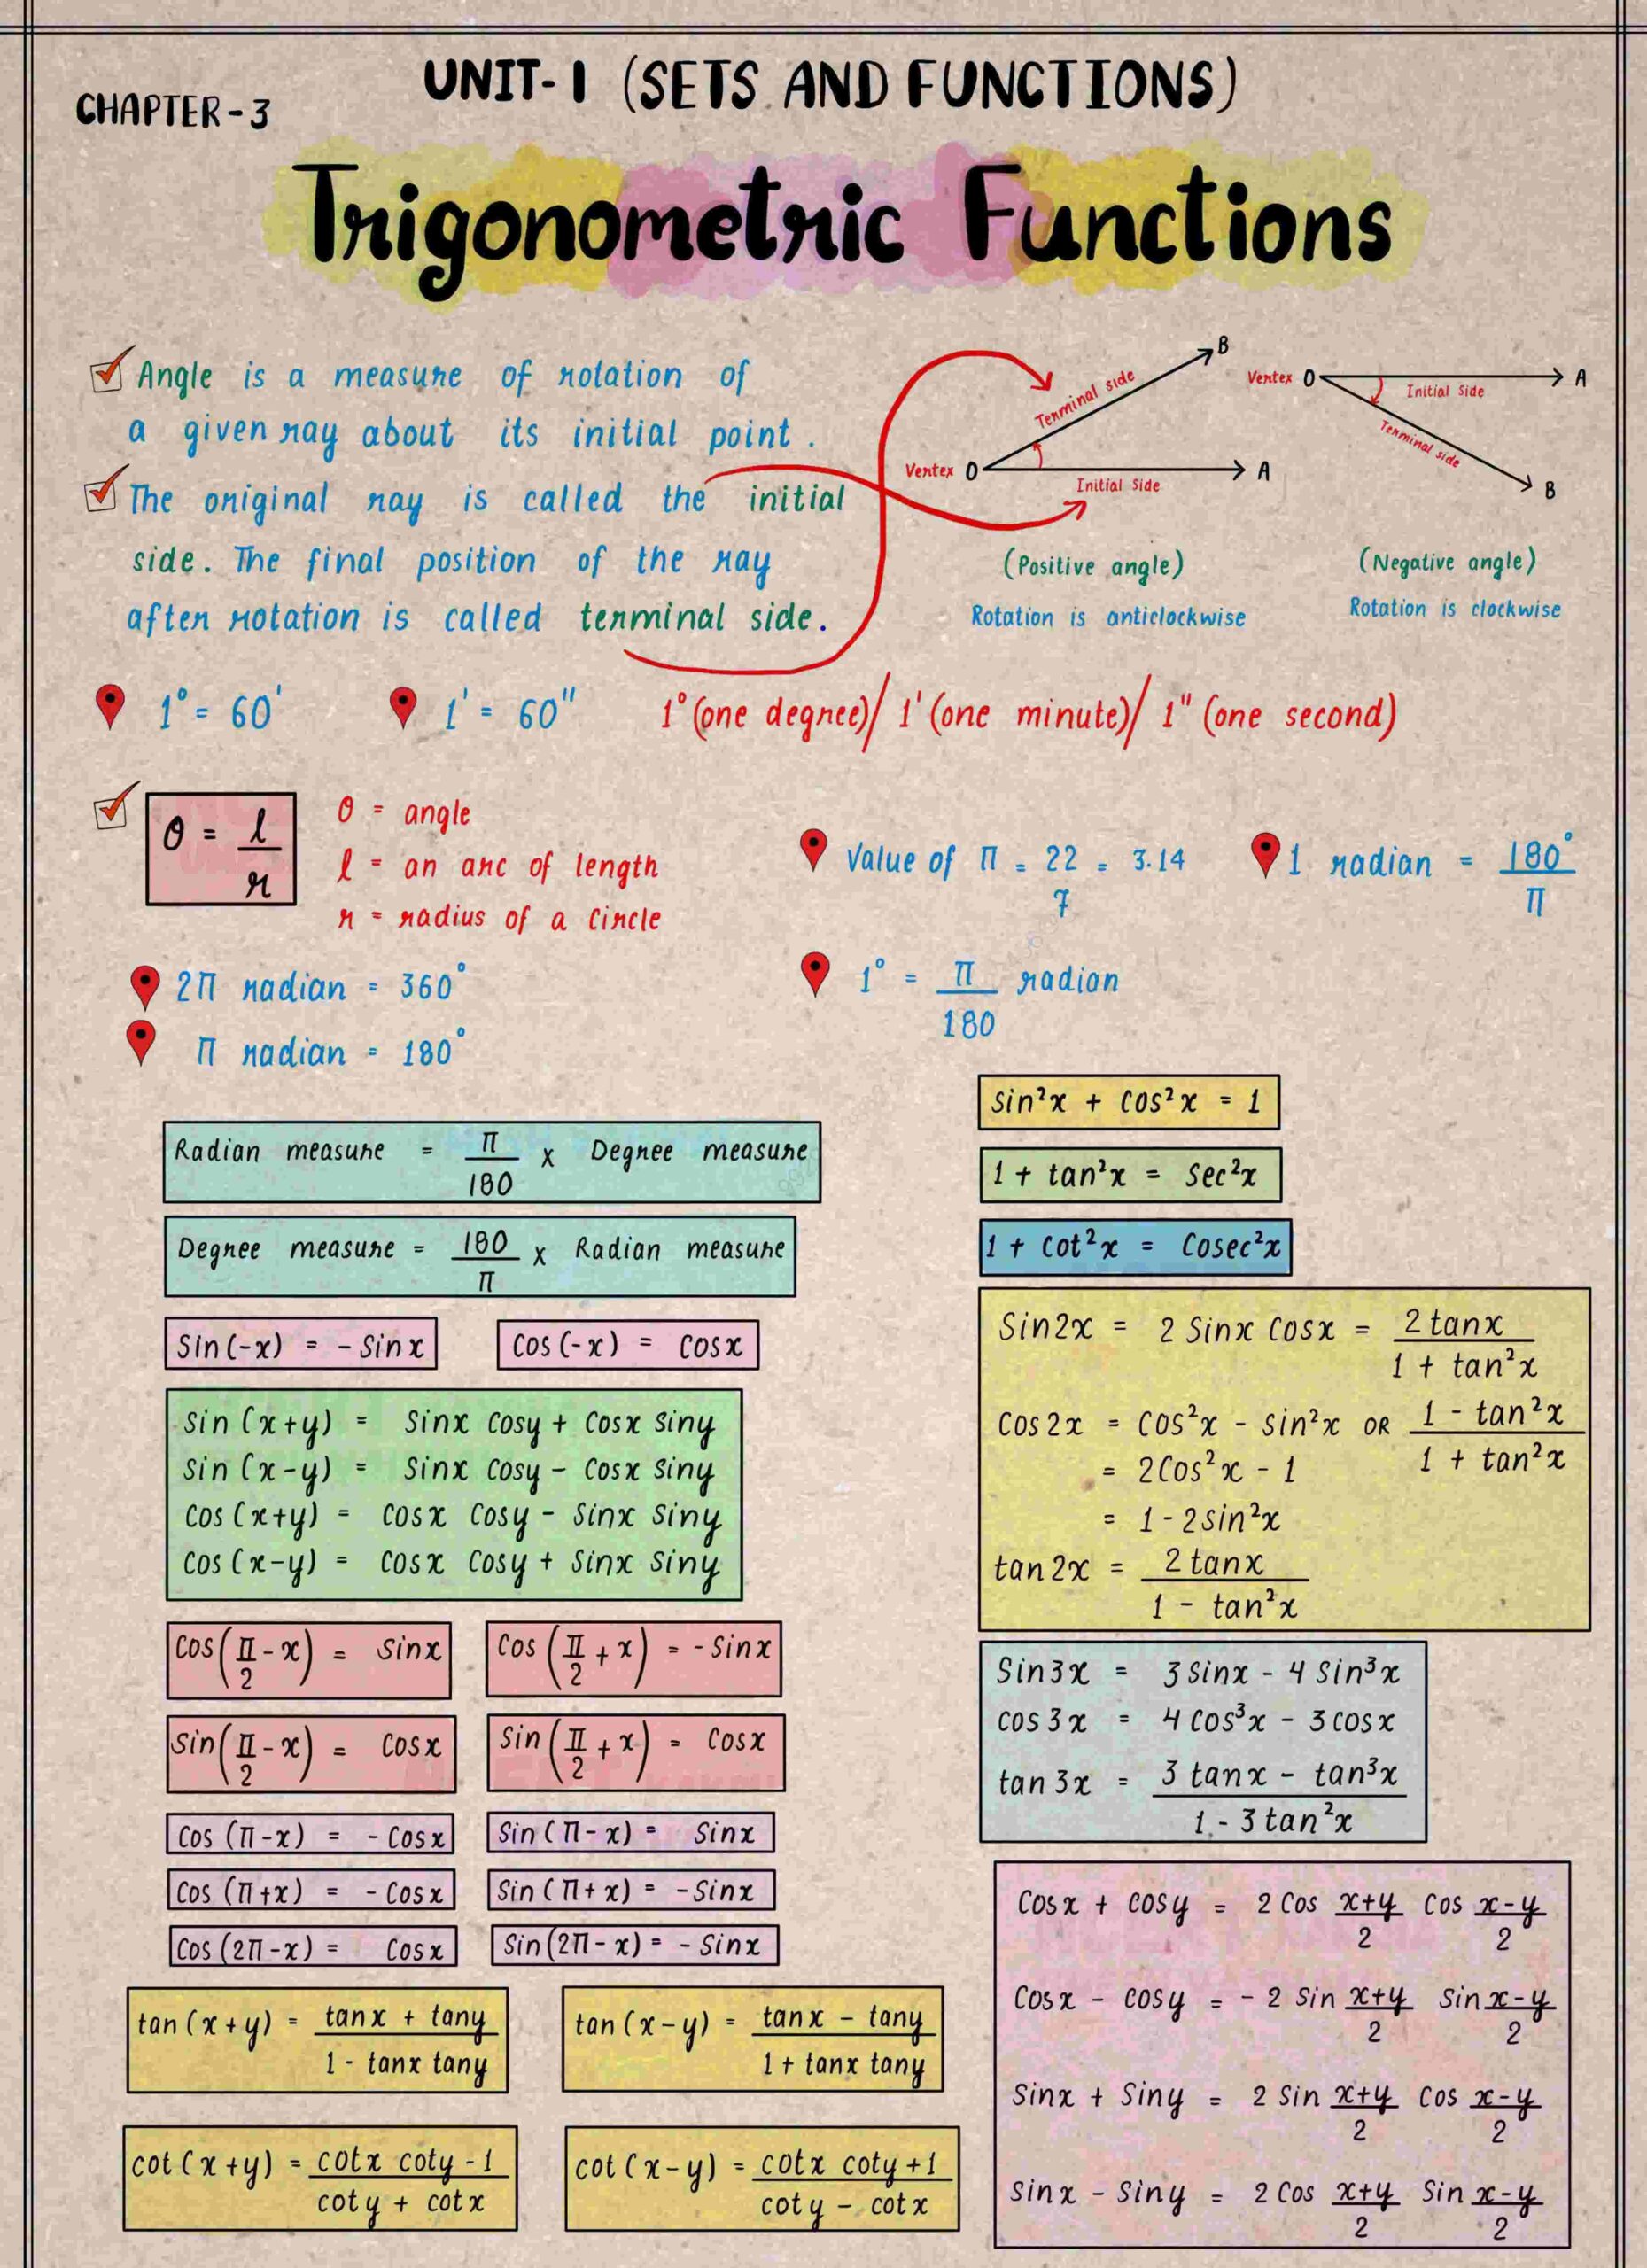 UNIT-1 (SETS AND FUNCTIONS)
CHAPTER-3
Trigonometric Functions
Angle is a measure of rotation of
a given ray about its initial point.
The original ray is called the initial
side. The final position of the ray
after rotation is called terminal side.
B
Terminal side
Vertex O
A
Initial Side
(Positive angle)
Rotation is anticlockwise
Vertex O
A
Initial Side
Terminal side
B
(Negative angle)
Rotation is clockwise
1° = 60'
1' = 60"
1° (one degree)/ 1' (one minute)/ 1" (one second)
θ = l/r
θ = angle
l = an arc of length
r = radius of a circle
Value of π = 22/7 = 3.14
1 radian = 180°/π
2π radian = 360°
π radian = 180°
1° = π/180 radian
Radian measure = π/180 x Degree measure
Degree measure = 180/π x Radian measure
Sin(-x) = - Sinx
Cos(-x) = Cosx
sin (x+y) = sinx cosy + cosx siny
sin (x-y) = sinx cosy - cosx siny
cos (x+y) = cosx cosy - sinx siny
cos (x-y) = cosx cosy + sinx siny
Cos(π/2 - x) = Sinx
Cos(π/2 + x) = - Sinx
Sin(π/2 - x) = Cosx
Sin(π/2 + x) = Cosx
Cos (π-x) = - Cosx
Sin (π-x) = Sinx
Cos (π+x) = - Cosx
Sin (π+x) = -Sinx
Cos (2π-x) = Cosx
Sin (2π-x) = - Sinx
tan (x+y) = tanx + tany / 1 - tanx tany
tan (x-y) = tanx - tany / 1 + tanx tany
cot (x+y) = cotx coty -1 / coty + cotx
cot (x-y) = cotx coty +1 / coty - cotx
sin²x + cos²x = 1
1 + tan²x = Sec²x
1 + cot²x = Cosec²x
Sin2x = 2 Sinx Cosx = 2 tanx / 1 + tan²x
Cos 2x = Cos²x - sin²x OR 1 - tan²x / 1 + tan²x
= 2Cos²x - 1
= 1 - 2sin²x
tan 2x = 2 tanx / 1 - tan²x
Sin3x = 3 sinx - 4 sin³x
cos 3x = 4 cos³x - 3 cosx
tan 3x = 3 tanx - tan³x / 1 - 3 tan²x
Cosx + cosy = 2 Cos x+y/2 Cos x-y/2
Cosx - cosy = - 2 Sin x+y/2 Sin x-y/2
Sinx + Siny = 2 Sin x+y/2 Cos x-y/2
Sinx - Siny = 2 Cos x+y/2 Sin x-y/2